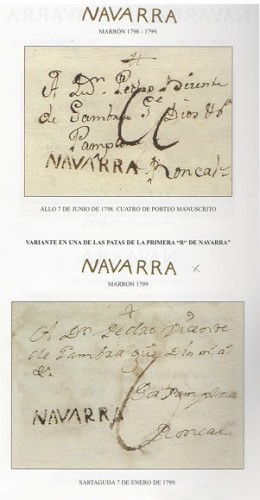 NAVARRA
MARRÓN 1798 - 1799.
A Dn. Pedro Vicente
de Gambra
Dios
Pamplo
NAVARRA. Roncal.
ALLO 7 DE JUNIO DE 1798. CUATRO DE PORTEO MANUSCRITO
VARIANTE EN UNA DE LAS PATAS DE LA PRIMERA "R" DE NAVARRA"
NAVARRA
MARRON 1799
A Dn. Pedro Vicente
de Gambra que Dios
Pamplona
NAVARRA
Roncal
SARTAGUDA 7 DE ENERO DE 1799.